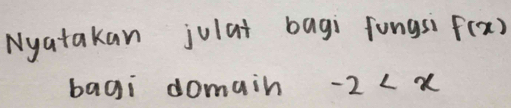 Nyatakan julat bagi fungsi f(x)
bagi domain -2 < x